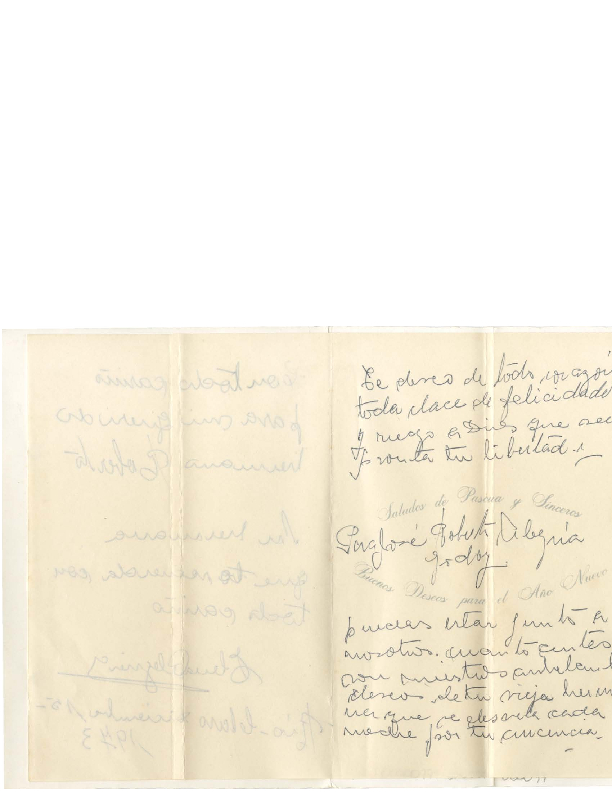 Te deseo de todo corazón
toda clace de felicidade
y ruego a Dios que sea
pronta tu libertad.
Saludos de Pascua y Sinceros
José Roberto Alegría
Godoy
Buenos Deseos para el Año Nuevo
puedas estar junto a
nosotros. cuanto antes
son nuestros
deseos de tu vieja herm
na, que se desvela cada
noche por tu ausencia.
Con todo cariño
para mi querido
hermano Roberto
Su hermana
que te recuerda con
todo cariño
Alegría
Diciembre 15-
1973